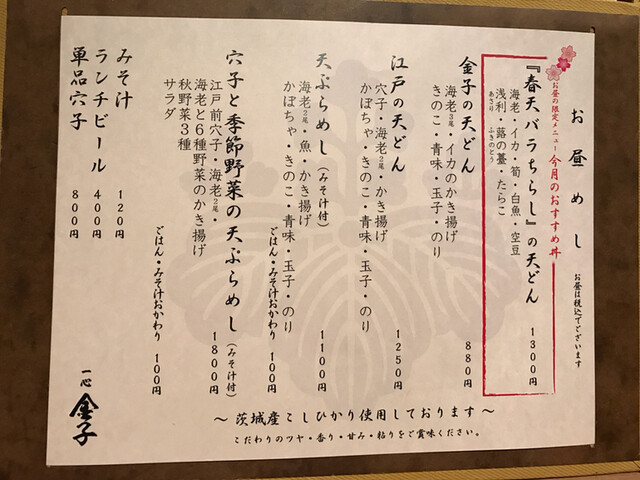 お昼めし
お昼は税込でございます
お昼の限定メニュー 今月のおすすめ丼
『春天バラちらし』の天どん 1300円
海老・イカ・筍・白魚・空豆
浅利・蕗の薹・たらこ
あさり ふきのとう
金子の天どん 880円
海老3尾・イカのかき揚げ
きのこ・青味・玉子・のり
江戸の天どん 1250円
穴子・海老2尾・かき揚げ
かぼちゃ・きのこ・青味・玉子・のり
天ぷらめし(みそ汁付) 1100円
海老2尾・魚・かき揚げ
かぼちゃ・きのこ・青味・玉子・のり
ごはん・みそ汁おかわり 100円
穴子と季節野菜の天ぷらめし(みそ汁付) 1800円
江戸前穴子・海老2尾・
海老と6種野菜のかき揚げ
秋野菜3種
サラダ
ごはん・みそ汁おかわり 100円
みそ汁 120円
ランチビール 400円
単品穴子 800円
〜茨城産こしひかり使用しております〜
こだわりのツヤ・香り・甘み・粘りをご賞味ください。
一心 金子